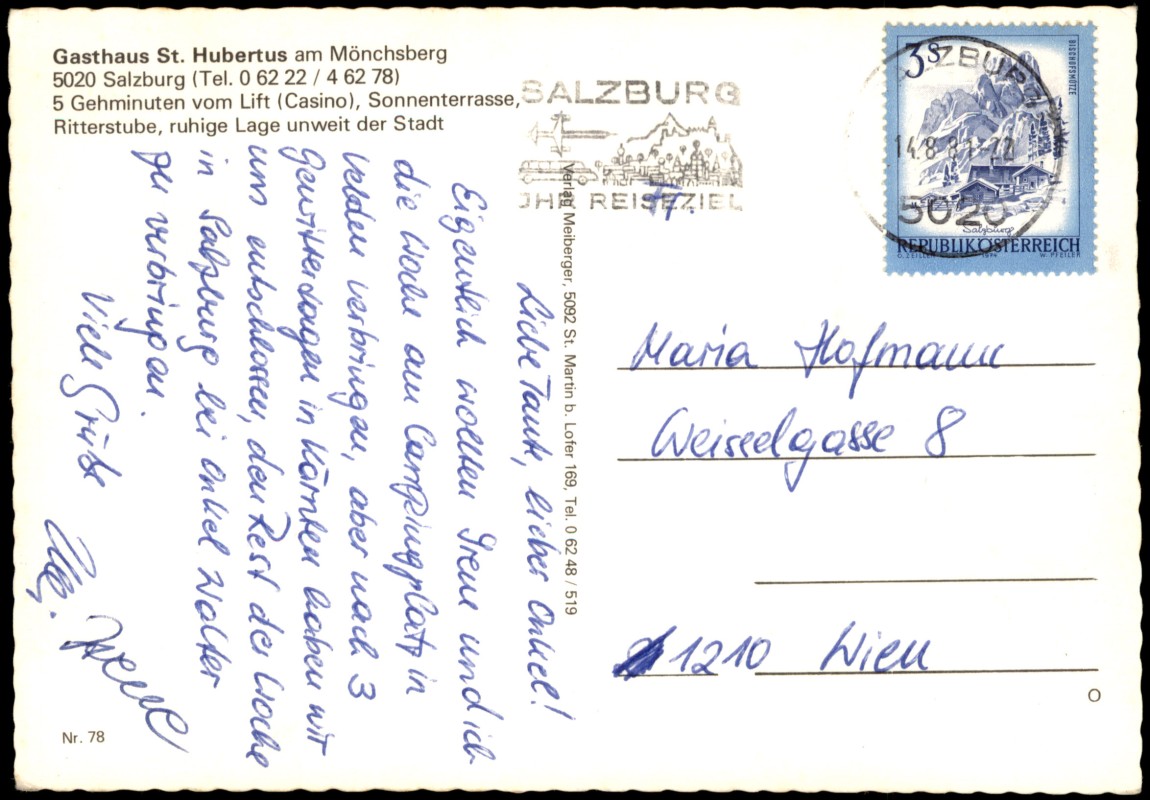 Gasthaus St. Hubertus am Mönchsberg
5020 Salzburg (Tel. 0 62 22 / 4 62 78)
5 Gehminuten vom Lift (Casino), Sonnenterrasse,
Ritterstube, ruhige Lage unweit der Stadt
SALZBURG
JHR REISEZIEL
ZBURG
14.8.8
5020
3S
BISCHOFSMÜTZE
Salzburg
REPUBLIK ÖSTERREICH
O. ZEILLER
W. PFEILER
Liebe Tante, lieber Onkel!
Eigentlich wollten Irene und ich
die Woche am Campingplatz in
Velden verbringen, aber nach 3
Gewittertagen in Kärnten haben wir
uns entschlossen, den Rest der Woche
in Salzburg bei Onkel Walter
zu verbringen.
Viele Grüße
Irene
Verlag Meiberger, 5092 St. Martin b. Lofer 169, Tel. 0 62 48 / 519
Maria Hofmann
Weisselgasse 8
1210 Wien
Nr. 78